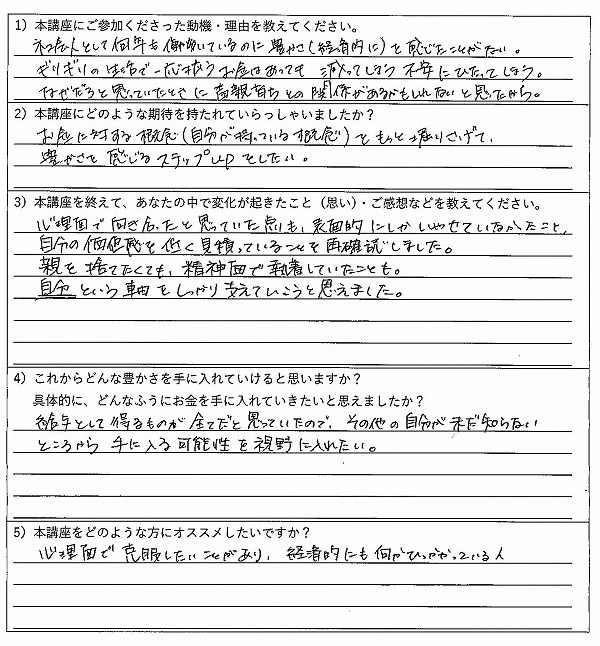 1）本講座にご参加くださった動機・理由を教えてください。
社会人として何年も働いているのに豊かさ(経済的に)を感じたことがない。
ギリギリの生活で一応は払うお金はあっても減ってしまう不安にひたってしまう。
なぜだろうと思っていたときに毒親育ちとの関係があるかもしれないと思ったから。
2）本講座にどのような期待を持たれていらっしゃいましたか？
お金に対する概念(自分が持っている概念)をもっと掘りさげて、
豊かさを感じるステップupをしたい。
3）本講座を終えて、あなたの中で変化が起きたこと（思い）・ご感想などを教えてください。
心理面で向き合ったと思っていた点も、表面的にしかいやせていなかったこと、
自分の価値感を低く見積っていることを再確認しました。
親を捨てたくても、精神面で執着していたことも。
自分という軸をしっかり支えていこうと思えました。
4）これからどんな豊かさを手に入れていけると思いますか？
具体的に、どんなふうにお金を手に入れていきたいと思えましたか？
給与として得るものが全てだと思っていたので、その他の自分が未だ知らない
ところから手に入る可能性を視野に入れたい。
5）本講座をどのような方にオススメしたいですか？
心理面で克服したいことがあり、経済的にも何かひっかかっている人